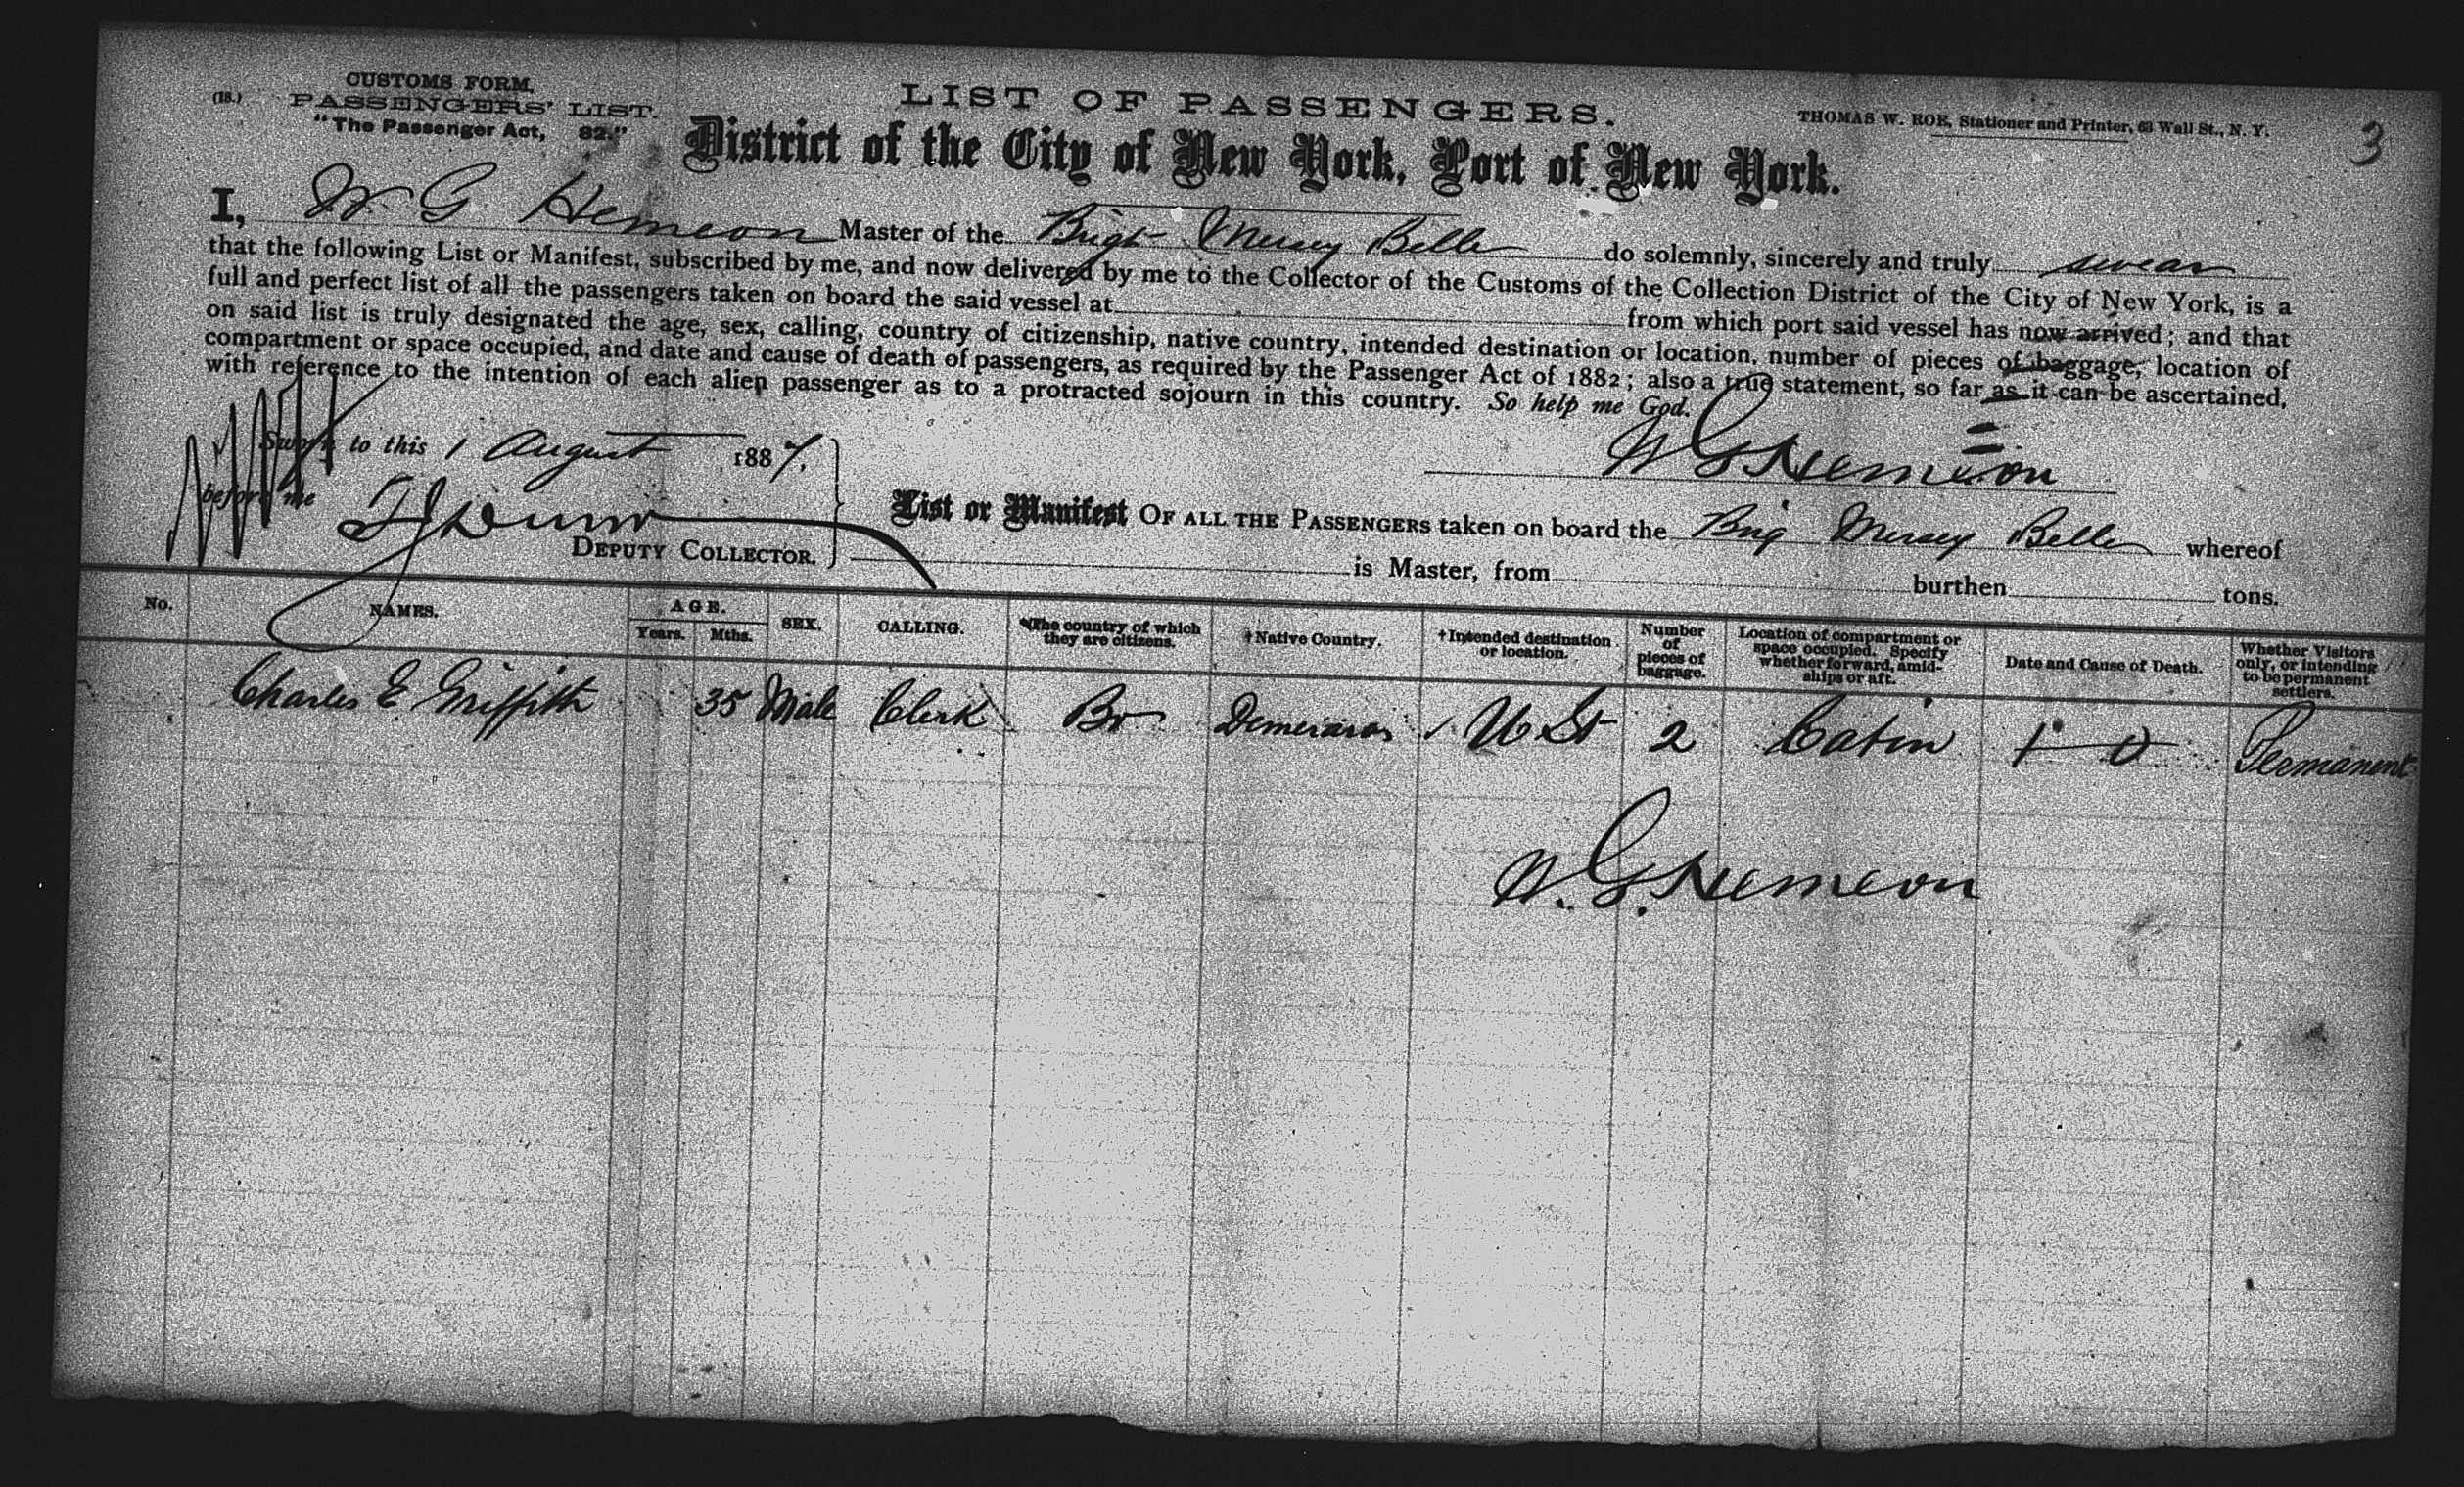 (18.)
CUSTOMS FORM.
PASSENGERS' LIST.
"The Passenger Act, 82."
LIST OF PASSENGERS.
THOMAS W. ROE, Stationer and Printer, 63 Wall St., N. Y.
3
District of the City of New York, Port of New York.
I, W G Hemeon Master of the Brigt Mersey Belle do solemnly, sincerely and truly swear
that the following List or Manifest, subscribed by me, and now delivered by me to the Collector of the Customs of the Collection District of the City of New York, is a
full and perfect list of all the passengers taken on board the said vessel at from which port said vessel has now arrived; and that
on said list is truly designated the age, sex, calling, country of citizenship, native country, intended destination or location, number of pieces of baggage, location of
compartment or space occupied, and date and cause of death of passengers, as required by the Passenger Act of 1882; also a true statement, so far as it can be ascertained,
with reference to the intention of each alien passenger as to a protracted sojourn in this country. So help me God.
Sworn to this 1 August 1887.
W G Hemeon
before me
DEPUTY COLLECTOR.
List or Manifest OF ALL THE PASSENGERS taken on board the Brig Mersey Belle whereof
is Master, from burthen tons.
No. NAMES. AGE. Years. Mths. SEX. CALLING. *The country of which they are citizens. †Native Country. †Intended destination or location. Number of pieces of baggage. Location of compartment or space occupied. Specify whether forward, amidships or aft. Date and Cause of Death. Whether Visitors only, or intending to be permanent settlers.
Charles E Griffith 35 Male Clerk Br Demerara U St 2 Cabin Permanent
W. G. Hemeon